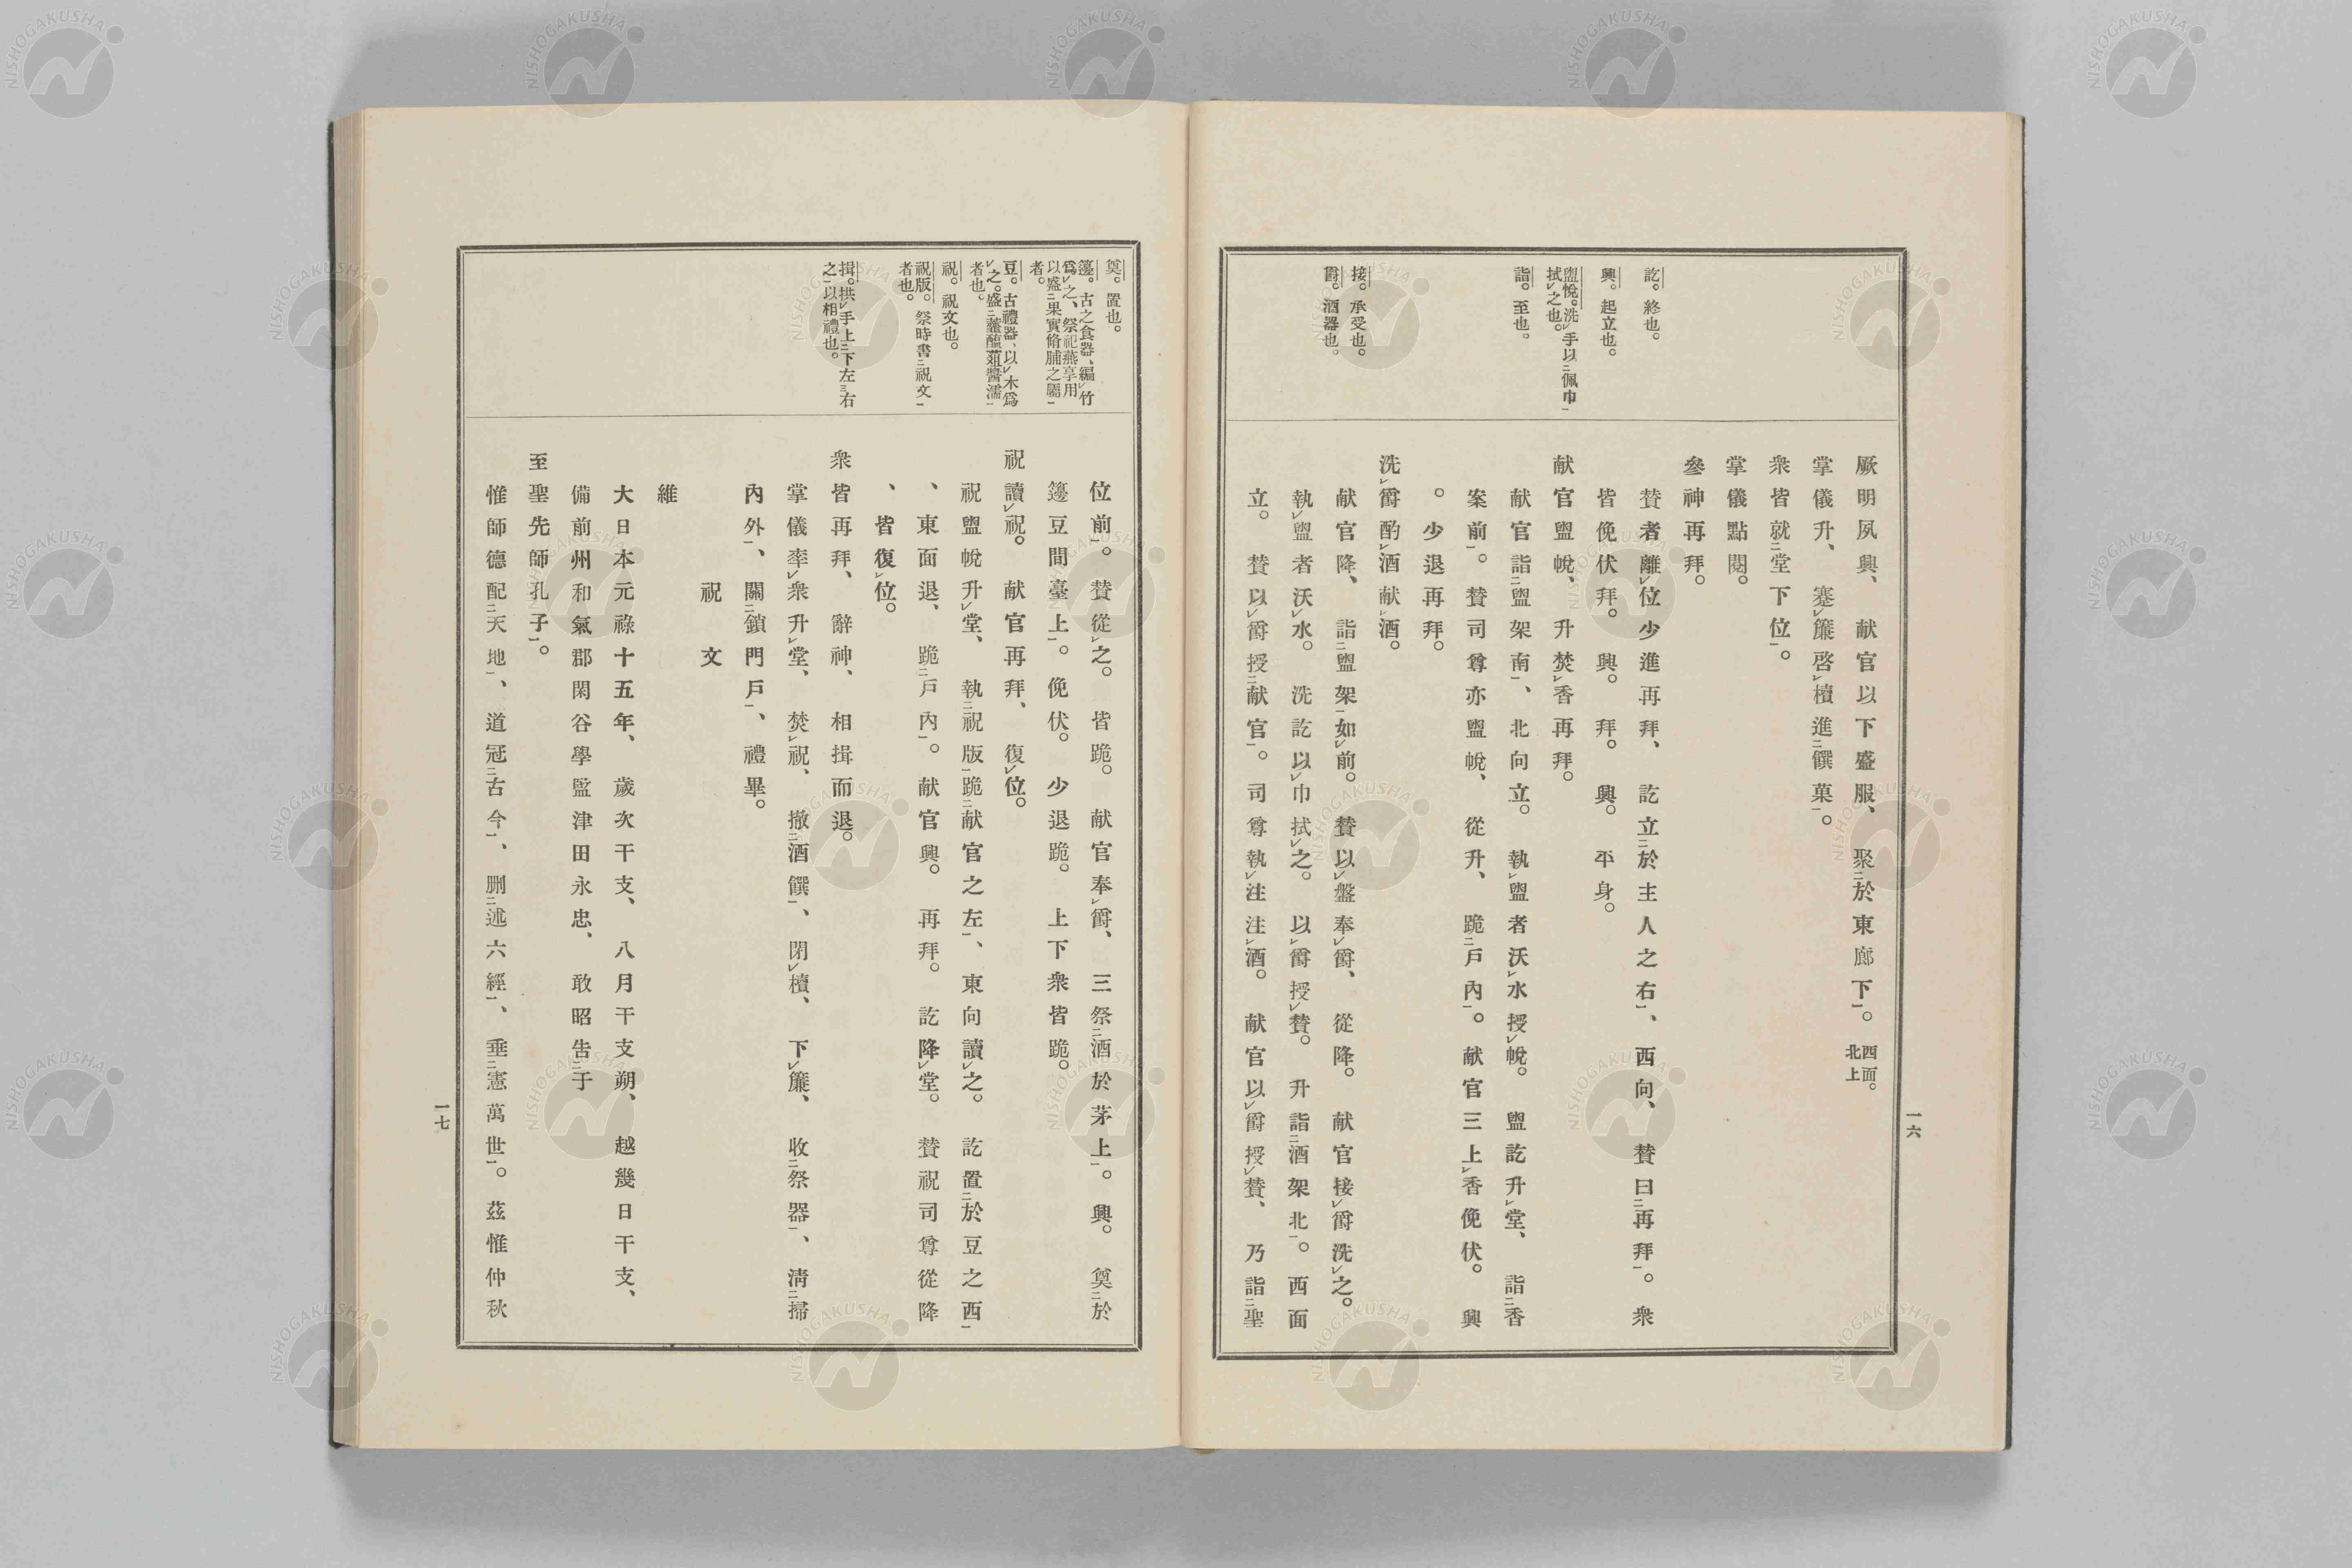 訖。終也。
興。起立也。
盥帨。洗㆑手以㆓佩巾㆒
拭㆑之也。
詣。至也。
接。承受也。
爵。酒器也。
厥明夙興、献官以下盛服、聚㆓於東廊下㆒。西面。北上
掌儀升、塞㆑簾啓㆑櫝進㆓饌菓㆒。
衆皆就㆓堂下位㆒。
掌儀點閱。
參神再拜。
賛者離㆑位少進再拜、訖立㆓於主人之右㆒、西向、賛曰㆓再拜㆒。衆
皆俛伏拜。興。拜。興。平身。
献官盥帨、升焚㆑香再拜。
献官詣㆓盥架南㆒、北向立。執㆑盥者沃㆑水授㆑帨。盥訖升㆑堂、詣㆓香
案前㆒。賛司尊亦盥帨、從升、跪㆓戶內㆒。献官三上㆑香俛伏。興
。少退再拜。
洗㆑爵酌㆑酒献㆑酒。
献官降、詣㆓盥架㆒如㆑前。賛以㆑盤奉㆑爵、從降。献官接㆑爵洗㆑之。
執㆑盥者沃㆑水。洗訖以㆑巾拭㆑之。以㆑爵授㆑賛。升詣㆓酒架北㆒。西面
立。賛以㆑爵授㆓献官㆒。司尊執㆑注注㆑酒。献官以㆑爵授㆑賛、乃詣㆓聖
一六
奠。置也。
籩。古之食器、編㆑竹
爲㆑之、祭祀燕享用
以盛㆓果實脩脯之屬㆒
者。
豆。古禮器、以㆑木爲
㆑之。盛㆓虀醢菹醬濡㆒
者也。
祝。祝文也。
祝版。祭時書㆓祝文㆒
者也。
揖。拱㆑手上㆓下左㆔右
之㆒以相禮也。
位前㆒。賛從㆑之。皆跪。献官奉㆑爵、三祭㆓酒於茅上㆒。興。奠㆓於
籩豆間臺上㆒。俛伏。少退跪。上下衆皆跪。
祝讀㆑祝。献官再拜、復㆑位。
祝盥帨升㆑堂、執㆓祝版㆒跪㆓献官之左㆒、東向讀㆑之。訖置㆓於豆之西㆒
、東面退、跪㆓戶內㆒。献官興。再拜。訖降㆑堂。賛祝司尊從降
、皆復㆑位。
衆皆再拜、辭神、相揖而退。
掌儀率㆑衆升㆑堂、焚㆑祝、撤㆓酒饌㆒、閉㆑櫝、下㆑簾、收㆓祭器㆒、淸㆓掃
內外㆒、關㆓鎖門戶㆒、禮畢。
祝文
維
大日本元祿十五年、歲次干支、八月干支朔、越幾日干支、
備前州和氣郡閑谷學監津田永忠、敢昭告㆓于
至聖先師孔子㆒。
惟師德配㆓天地㆒、道冠㆓古今㆒、刪㆓述六經㆒、垂㆓憲萬世㆒。茲惟仲秋
一七
NISHOGAKUSHA